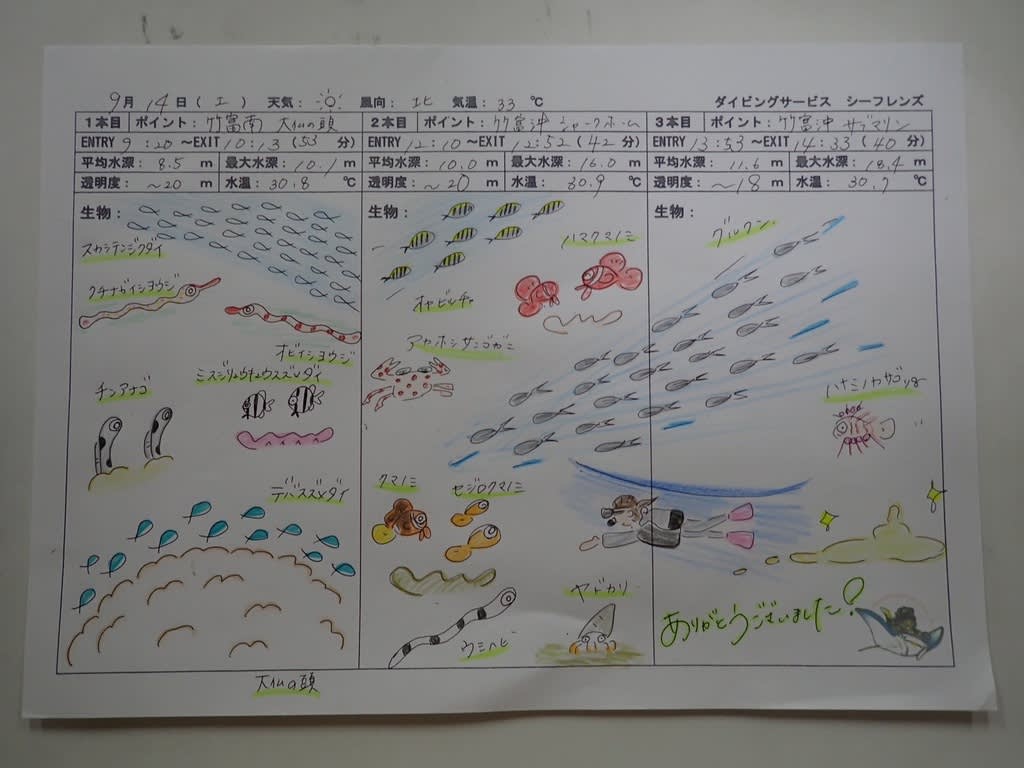 9月 14日(土) 天気: 風向: 北 気温: 33 ℃ ダイビングサービス シーフレンズ
1本目 ポイント: 竹富南 大仏の頭
ENTRY 9:20 ~EXIT 10:13 (53 分)
平均水深: 8.5 m 最大水深: 10.1 m
透明度: ~20 m 水温: 30.8 ℃
生物:
スカシテンジクダイ
クチナガイシヨウジ
オビイシヨウジ
ミスジリュウキュウスズメダイ
チンアナゴ
デバスズメダイ
大仏の頭
2本目 ポイント: 竹富沖 シャークホーム
ENTRY 12:10 ~EXIT 12:52 (42 分)
平均水深: 10.0 m 最大水深: 16.0 m
透明度: ~20 m 水温: 30.9 ℃
生物:
ハマクマノミ
オヤビッチャ
アカホシサンゴガニ
クマノミ
セジロクマノミ
ヤドカリ
ウミヘビ
3本目 ポイント: 竹富沖 サブマリン
ENTRY 13:53 ~EXIT 14:33 (40 分)
平均水深: 11.6 m 最大水深: 18.4 m
透明度: ~18 m 水温: 30.7 ℃
生物:
グルクン
ありがとうございました!